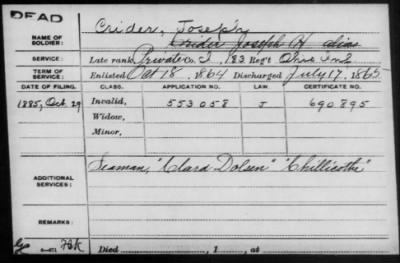 DEAD
Crider, Joseph
NAME OF SOLDIER: Crider Joseph H alias
SERVICE: Late rank, Private Co. I, 183 Reg't Ohio Inf
TERM OF SERVICE: Enlisted Oct 18, 1864 Discharged July 17, 1865
DATE OF FILING. CLASS. APPLICATION NO. LAW. CERTIFICATE NO.
1885, Oct. 29 Invalid, 553058 J 690895
Widow,
Minor,
ADDITIONAL SERVICES: Seaman, "Clara Dolsen" "Chillicothe"
REMARKS:
Died , 1 , at